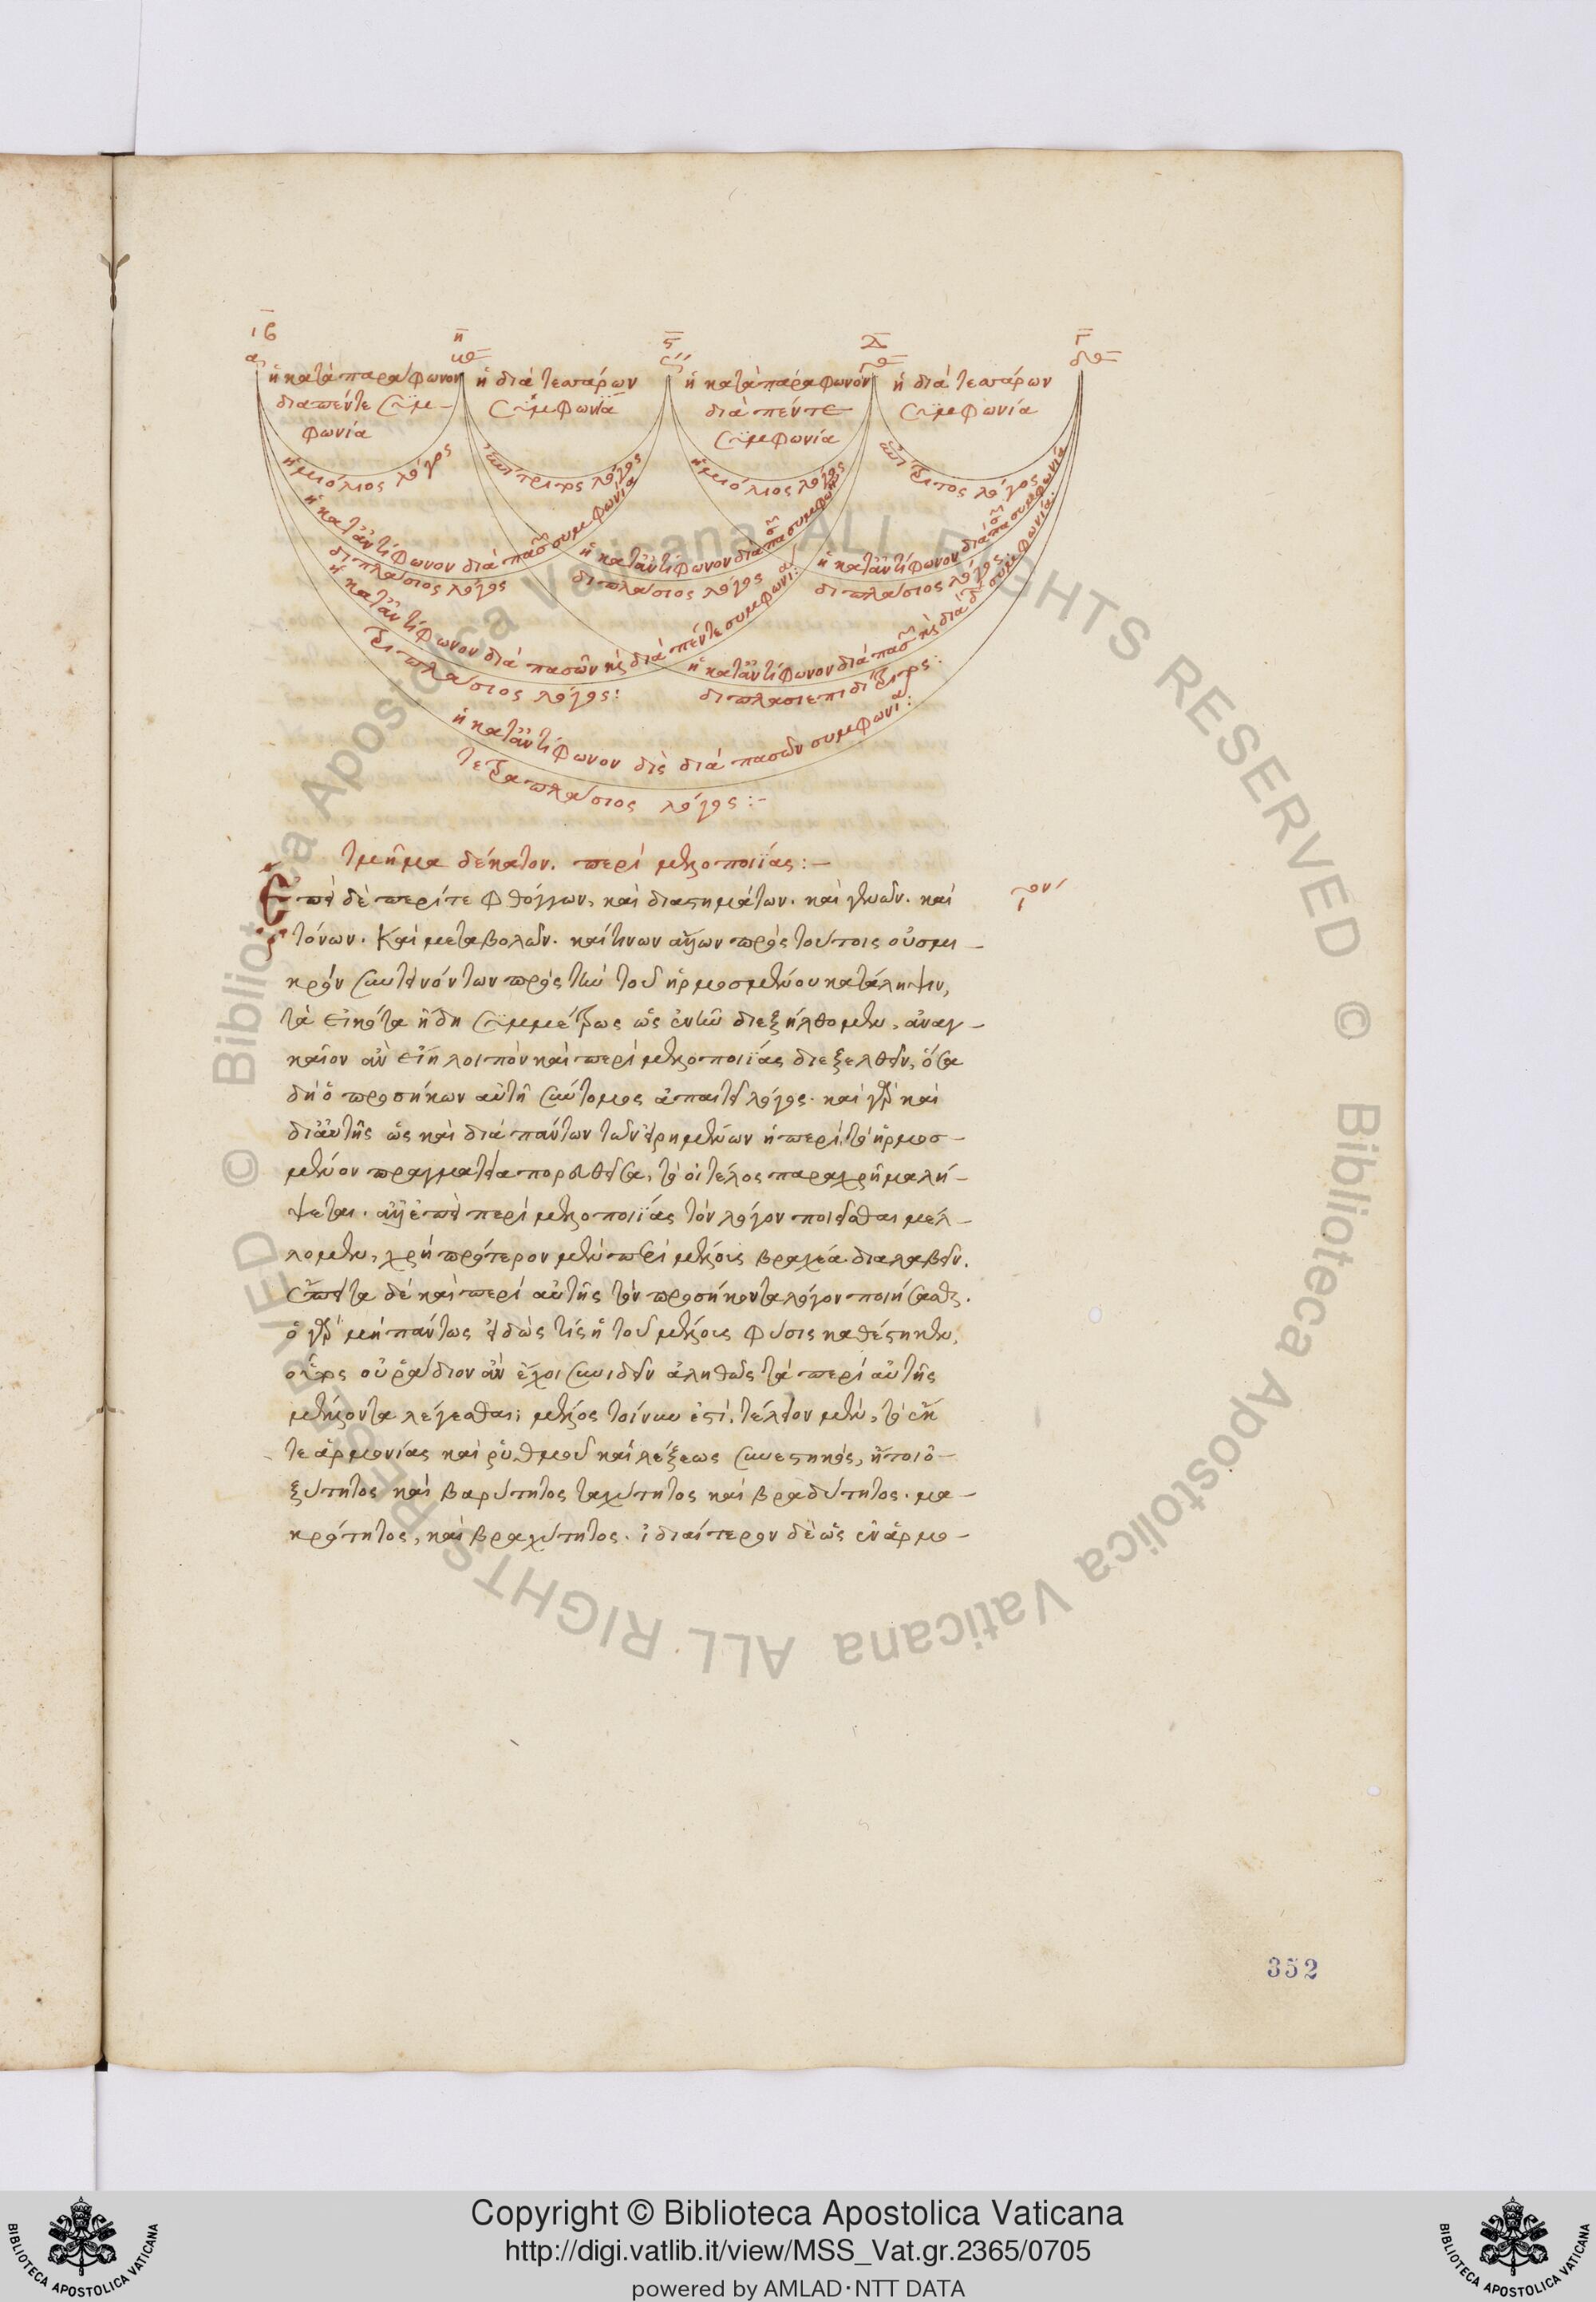 ιβ η ς δ γ
ἡ κατὰ παράφωνον
διαπέντε συμ-
φωνία
ἡ διὰ τεσσάρων
συμφωνία
ἡ κατὰ παράφωνον
διὰ πέντε
συμφωνία
ἡ διὰ τεσσάρων
συμφωνία
ἡμιόλιος λόγος
ἐπίτριτος λόγος
ἡμιόλιος λόγος
ἐπίτριτος λόγος
ἡ κατ' ἀντίφωνον διὰ πασῶν συμφωνία
διπλάσιος λόγος
ἡ κατ' ἀντίφωνον διὰ πασῶν συμφωνία
διπλάσιος λόγος
ἡ κατ' ἀντίφωνον διὰ πασῶν συμφωνία
διπλάσιος λόγος
ἡ κατ' ἀντίφωνον διὰ πασῶν καὶ διὰ πέντε συμφωνία:
τριπλάσιος λόγος:
ἡ κατ' ἀντίφωνον διὰ πασῶν καὶ διὰ δ συμφωνία:
διπλασιεπιδίτριτος:
ἡ κατ' ἀντίφωνον δὶς διὰ πασῶν συμφωνία:
τετραπλάσιος λόγος:-
τμῆμα δέκατον. περὶ μελοποιΐας:-
Ἐπεὶ δὲ περί τε φθόγγων, καὶ διαστημάτων. καὶ γενῶν. καὶ
τόνων. καὶ μεταβολῶν. καί τινων ἄλλων πρὸς τούτοις οὐ σμι-
κρὸν συντεινόντων πρὸς τὴν τοῦ ἡρμοσμένου κατάληψιν,
τὰ εἰκότα ἤδη συμμέτρως ὡς ἐνῆν διεξήλθομεν, ἀναγ-
καῖον ἂν εἴη λοιπὸν καὶ περὶ μελοποιΐας διεξελθεῖν, ὅσα
δὴ ὁ προσήκων αὐτῇ σύντομος ἀπαιτεῖ λόγος. καὶ γὰρ καὶ
δι' αὐτῆς ὡς καὶ διὰ πάντων τῶν εἰρημένων ἡ περὶ τὸ ἡρμοσ-
μένον πραγματεία πορευθεῖσα, τό οἱ τέλος παραχρῆμα λή-
ψεται. ἀλλ' ἐπεὶ περὶ μελοποιΐας τὸν λόγον ποιεῖσθαι μέλ-
λομεν, χρὴ πρότερον μὲν περὶ μέλους βραχέα διαλαβεῖν.
ἔπειτα δὲ καὶ περὶ αὐτῆς τὸν προσήκοντα λόγον ποιήσασθαι.
ὁ γὰρ μὴ πάντως εἰδὼς τίς ἡ τοῦ μέλους φύσις καθέστηκεν,
οὗτος οὐ ῥάδιον ἂν ἔχοι συνιδεῖν ἀληθῶς τὰ περὶ αὐτῆς
μέλλοντα λέγεσθαι; μέλος τοίνυν ἐστὶ. τέλειον μὲν, τὸ ἔκ
τε ἁρμονίας καὶ ῥυθμοῦ καὶ λέξεως συνεστηκὸς, ἤτοι ὀ-
ξύτητος καὶ βαρύτητος ταχύτητος καὶ βραδύτητος. μα-
κρότητος, καὶ βραχύτητος. ἰδιαίτερον δὲ ὡς ἐν ἁρμο-
352
© Biblioteca Apostolica Vaticana ALL RIGHTS RESERVED © Biblioteca Apostolica Vaticana ALL RIGHTS RESERVED
Copyright © Biblioteca Apostolica Vaticana
http://digi.vatlib.it/view/MSS_Vat.gr.2365/0705
powered by AMLAD·NTT DATA
BIBLIOTECA APOSTOLICA VATICANA
BIBLIOTECA APOSTOLICA VATICANA